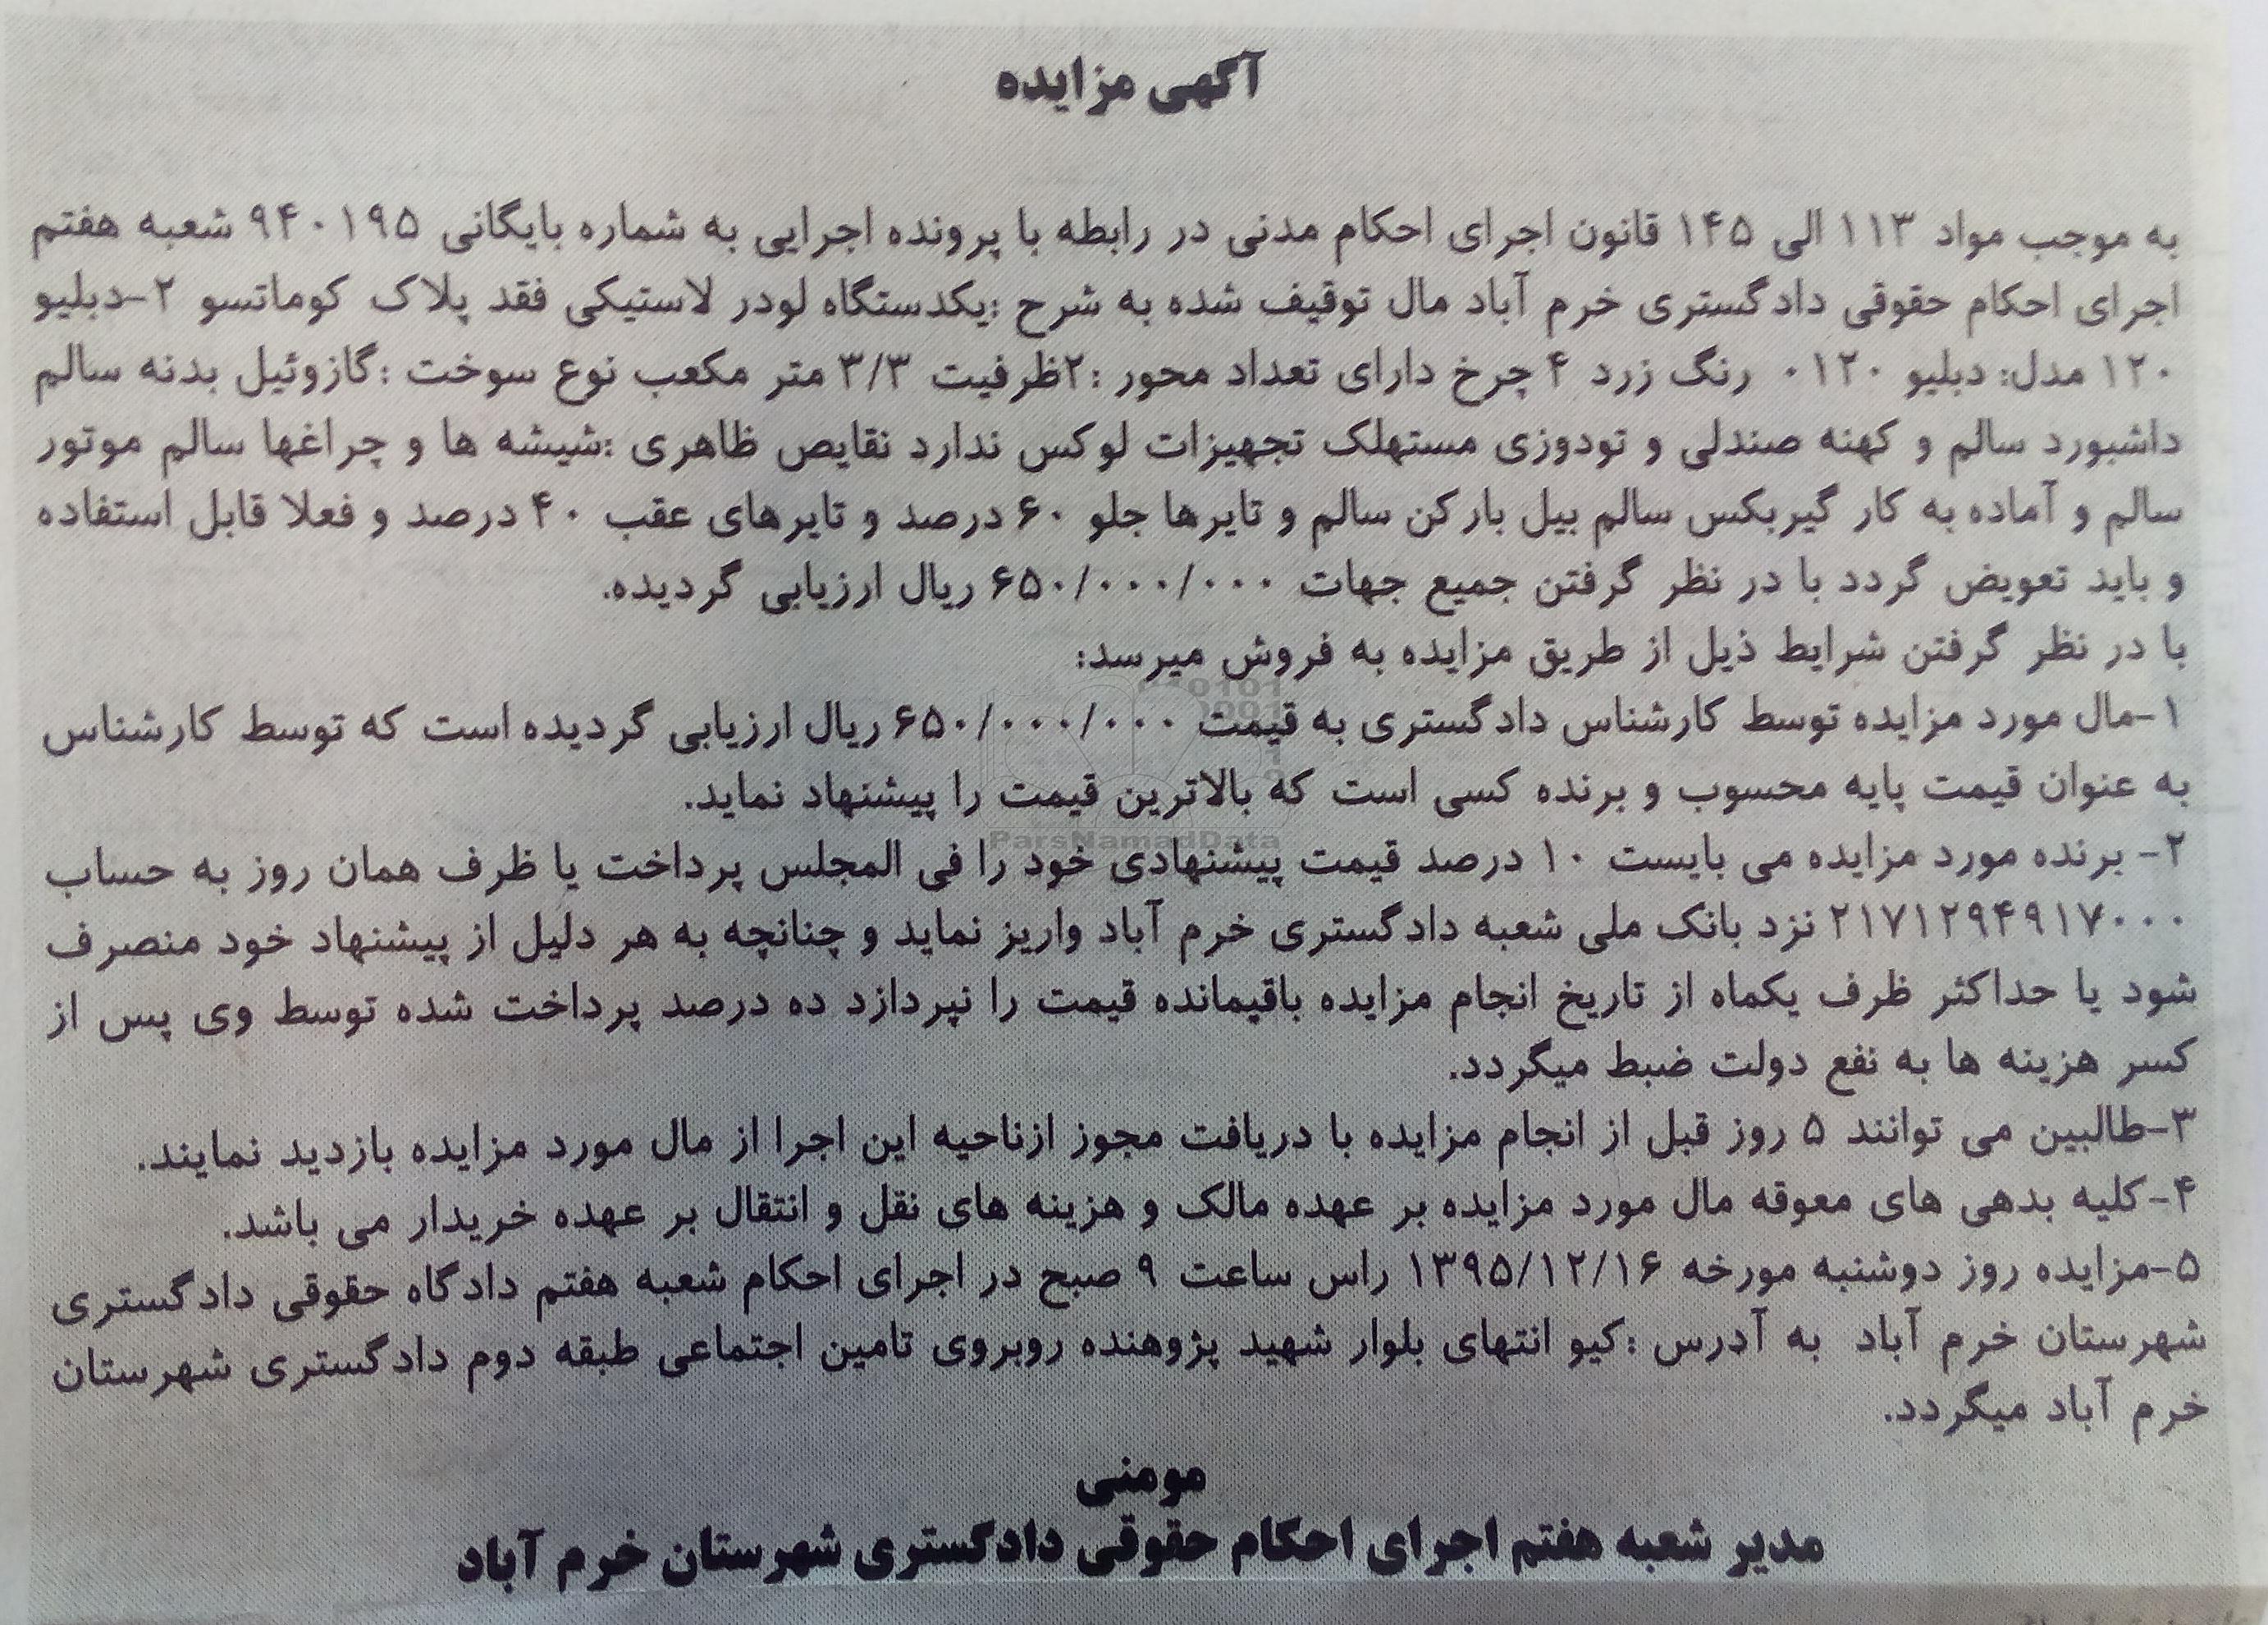 آگهی مزایده
به موجب مواد ۱۱۳ الی ۱۴۵ قانون اجرای احکام مدنی در رابطه با پرونده اجرایی به شماره بایگانی ۹۴۰۱۹۵ شعبه هفتم
اجرای احکام حقوقی دادگستری خرم آباد مال توقیف شده به شرح :یکدستگاه لودر لاستیکی فقد پلاک کوماتسو ۲-دبلیو
۱۲۰ مدل: دبلیو ۰۱۲۰ رنگ زرد ۴ چرخ دارای تعداد محور :۲ظرفیت ۳/۳ متر مکعب نوع سوخت :گازوئیل بدنه سالم
داشبورد سالم و کهنه صندلی و تودوزی مستهلک تجهیزات لوکس ندارد نقایص ظاهری :شیشه ها و چراغها سالم موتور
سالم و آماده به کار گیربکس سالم بیل بارکن سالم و تایرها جلو ۶۰ درصد و تایرهای عقب ۴۰ درصد و فعلا قابل استفاده
و باید تعویض گردد با در نظر گرفتن جمیع جهات ۶۵۰/۰۰۰/۰۰۰ ریال ارزیابی گردیده.
با در نظر گرفتن شرایط ذیل از طریق مزایده به فروش میرسد:
۱-مال مورد مزایده توسط کارشناس دادگستری به قیمت ۶۵۰/۰۰۰/۰۰۰ ریال ارزیابی گردیده است که توسط کارشناس
به عنوان قیمت پایه محسوب و برنده کسی است که بالاترین قیمت را پیشنهاد نماید.
ParsNamadData
۲- برنده مورد مزایده می بایست ۱۰ درصد قیمت پیشنهادی خود را فی المجلس پرداخت یا ظرف همان روز به حساب
۲۱۷۱۲۹۴۹۱۷۰۰۰ نزد بانک ملی شعبه دادگستری خرم آباد واریز نماید و چنانچه به هر دلیل از پیشنهاد خود منصرف
شود یا حداکثر ظرف یکماه از تاریخ انجام مزایده باقیمانده قیمت را نپردازد ده درصد پرداخت شده توسط وی پس از
کسر هزینه ها به نفع دولت ضبط میگردد.
۳-طالبین می توانند ۵ روز قبل از انجام مزایده با دریافت مجوز ازناحیه این اجرا از مال مورد مزایده بازدید نمایند.
۴-کلیه بدهی های معوقه مال مورد مزایده بر عهده مالک و هزینه های نقل و انتقال بر عهده خریدار می باشد.
۵-مزایده روز دوشنبه مورخه ۱۳۹۵/۱۲/۱۶ راس ساعت ۹ صبح در اجرای احکام شعبه هفتم دادگاه حقوقی دادگستری
شهرستان خرم آباد به آدرس :کیو انتهای بلوار شهید پژوهنده روبروی تامین اجتماعی طبقه دوم دادگستری شهرستان
خرم آباد میگردد.
مومنی
مدیر شعبه هفتم اجرای احکام حقوقی دادگستری شهرستان خرم آباد